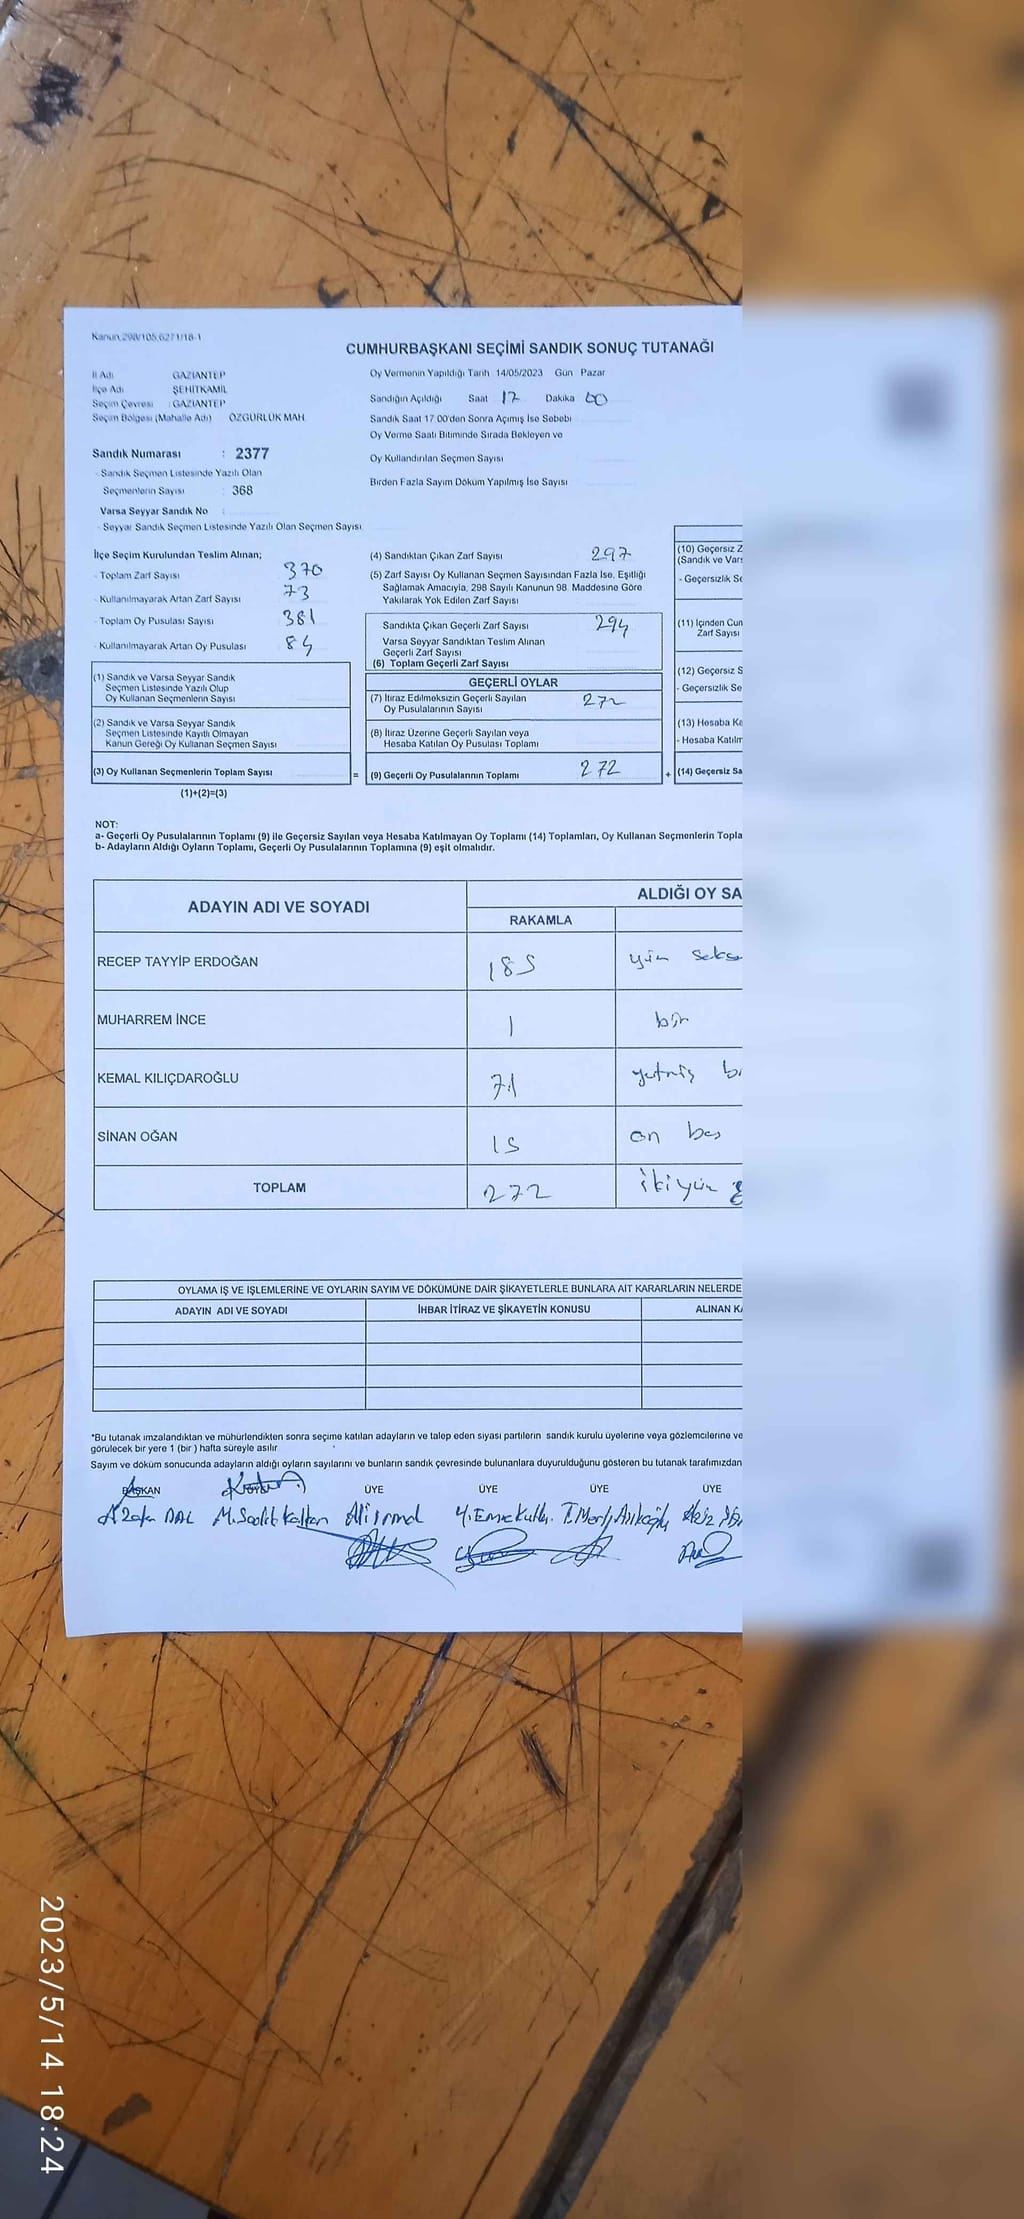 Kanun 298/105,6271/18-1
CUMHURBAŞKANI SEÇİMİ SANDIK SONUÇ TUTANAĞI
İl Adı GAZİANTEP
İlçe Adı ŞEHİTKAMİL
Seçim Çevresi : GAZİANTEP
Seçim Bölgesi (Mahalle Adı) ÖZGÜRLÜK MAH.
Oy Vermenin Yapıldığı Tarih 14/05/2023 Gün Pazar
Sandığın Açıldığı Saat 17 Dakika 00
Sandık Saat 17 00'den Sonra Açımış İse Sebebi
Oy Verme Saati Bitiminde Sırada Bekleyen ve
Oy Kullandırılan Seçmen Sayısı
Birden Fazla Sayım Döküm Yapılmış İse Sayısı
Sandık Numarası : 2377
- Sandık Seçmen Listesinde Yazılı Olan
Seçmenlerin Sayısı : 368
Varsa Seyyar Sandık No :
- Seyyar Sandık Seçmen Listesinde Yazılı Olan Seçmen Sayısı
İlçe Seçim Kurulundan Teslim Alınan;
- Toplam Zarf Sayısı 370
- Kullanılmayarak Artan Zarf Sayısı 73
- Toplam Oy Pusulası Sayısı 381
- Kullanılmayarak Artan Oy Pusulası 84
(1) Sandık ve Varsa Seyyar Sandık
Seçmen Listesinde Yazılı Olup
Oy Kullanan Seçmenlerin Sayısı
(2) Sandık ve Varsa Seyyar Sandık
Seçmen Listesinde Kayıtlı Olmayan
Kanun Gereği Oy Kullanan Seçmen Sayısı
(3) Oy Kullanan Seçmenlerin Toplam Sayısı
(1)+(2)=(3)
(4) Sandıktan Çıkan Zarf Sayısı 297
(5) Zarf Sayısı Oy Kullanan Seçmen Sayısından Fazla İse, Eşitliği
Sağlamak Amacıyla, 298 Sayılı Kanunun 98. Maddesine Göre
Yakılarak Yok Edilen Zarf Sayısı
Sandıkta Çıkan Geçerli Zarf Sayısı 294
Varsa Seyyar Sandıktan Teslim Alınan
Geçerli Zarf Sayısı
(6) Toplam Geçerli Zarf Sayısı
GEÇERLİ OYLAR
(7) İtiraz Edilmeksizin Geçerli Sayılan
Oy Pusulalarının Sayısı 272
(8) İtiraz Üzerine Geçerli Sayılan veya
Hesaba Katılan Oy Pusulası Toplamı
= (9) Geçerli Oy Pusulalarının Toplamı 272 +
(10) Geçersiz Z
(Sandık ve Vars
- Geçersizlik Se
(11) İçinden Cum
Zarf Sayısı
(12) Geçersiz S
- Geçersizlik Se
(13) Hesaba Ka
- Hesaba Katılm
(14) Geçersiz Sa
NOT:
a- Geçerli Oy Pusulalarının Toplamı (9) ile Geçersiz Sayılan veya Hesaba Katılmayan Oy Toplamı (14) Toplamları, Oy Kullanan Seçmenlerin Topla
b- Adayların Aldığı Oyların Toplamı, Geçerli Oy Pusulalarının Toplamına (9) eşit olmalıdır.
ADAYIN ADI VE SOYADI ALDIĞI OY SA
RAKAMLA
RECEP TAYYİP ERDOĞAN 185 yüz sekse
MUHARREM İNCE 1 bir
KEMAL KILIÇDAROĞLU 71 yetmiş bi
SİNAN OĞAN 15 on beş
TOPLAM 272 ikiyüz
OYLAMA İŞ VE İŞLEMLERİNE VE OYLARIN SAYIM VE DÖKÜMÜNE DAİR ŞİKAYETLERLE BUNLARA AİT KARARLARIN NELERDE
ADAYIN ADI VE SOYADI İHBAR İTİRAZ VE ŞİKAYETİN KONUSU ALINAN KA
*Bu tutanak imzalandıktan ve mühürlendikten sonra seçime katılan adayların ve talep eden siyasi partilerin sandık kurulu üyelerine veya gözlemcilerine ve
görülecek bir yere 1 (bir ) hafta süreyle asılır
Sayım ve döküm sonucunda adayların aldığı oyların sayılarını ve bunların sandık çevresinde bulunanlara duyurulduğunu gösteren bu tutanak tarafımızdan
BAŞKAN ÜYE ÜYE ÜYE ÜYE
2023/5/14 18:24